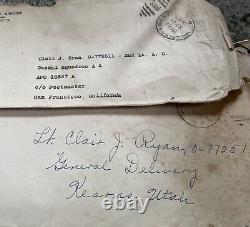 AIRPORT
Clair J. Ryan, O-772511 - 2nd Lt. A. C.
Casual Squadron A A
APO 16527 A
c/o Postmaster
San Francisco, California
Lt. Clair J. Ryan, O-77251
General Delivery
Kearns, Utah